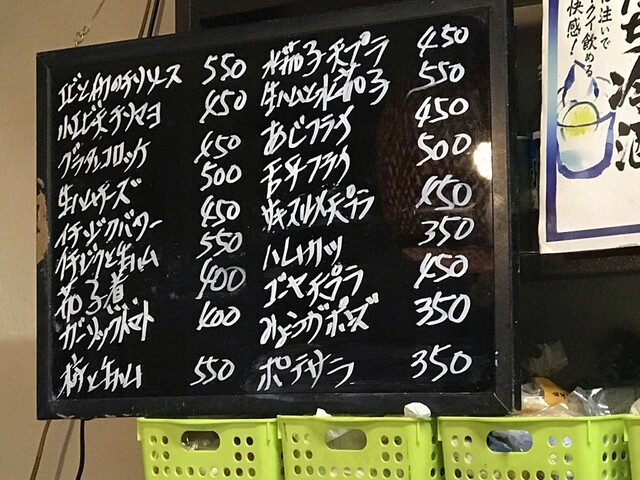 エビと卵のチリソース 550
小エビ天チリマヨ 450
グラタンコロッケ 450
生ハムチーズ 500
イチジクバター 450
イチジクと生ハム 550
茄子煮 400
ガーリックトマト 400
柿と生ハム 550
水茄子天プラ 450
生ハムと水茄子 550
あじフライ 450
舌平フライ 500
焼スルメ天プラ 450
ハムカツ 350
ゴーヤ天プラ 450
みょうがポン酢 350
ポテサラ 350
に注いで
飲める
快感！
冷酒